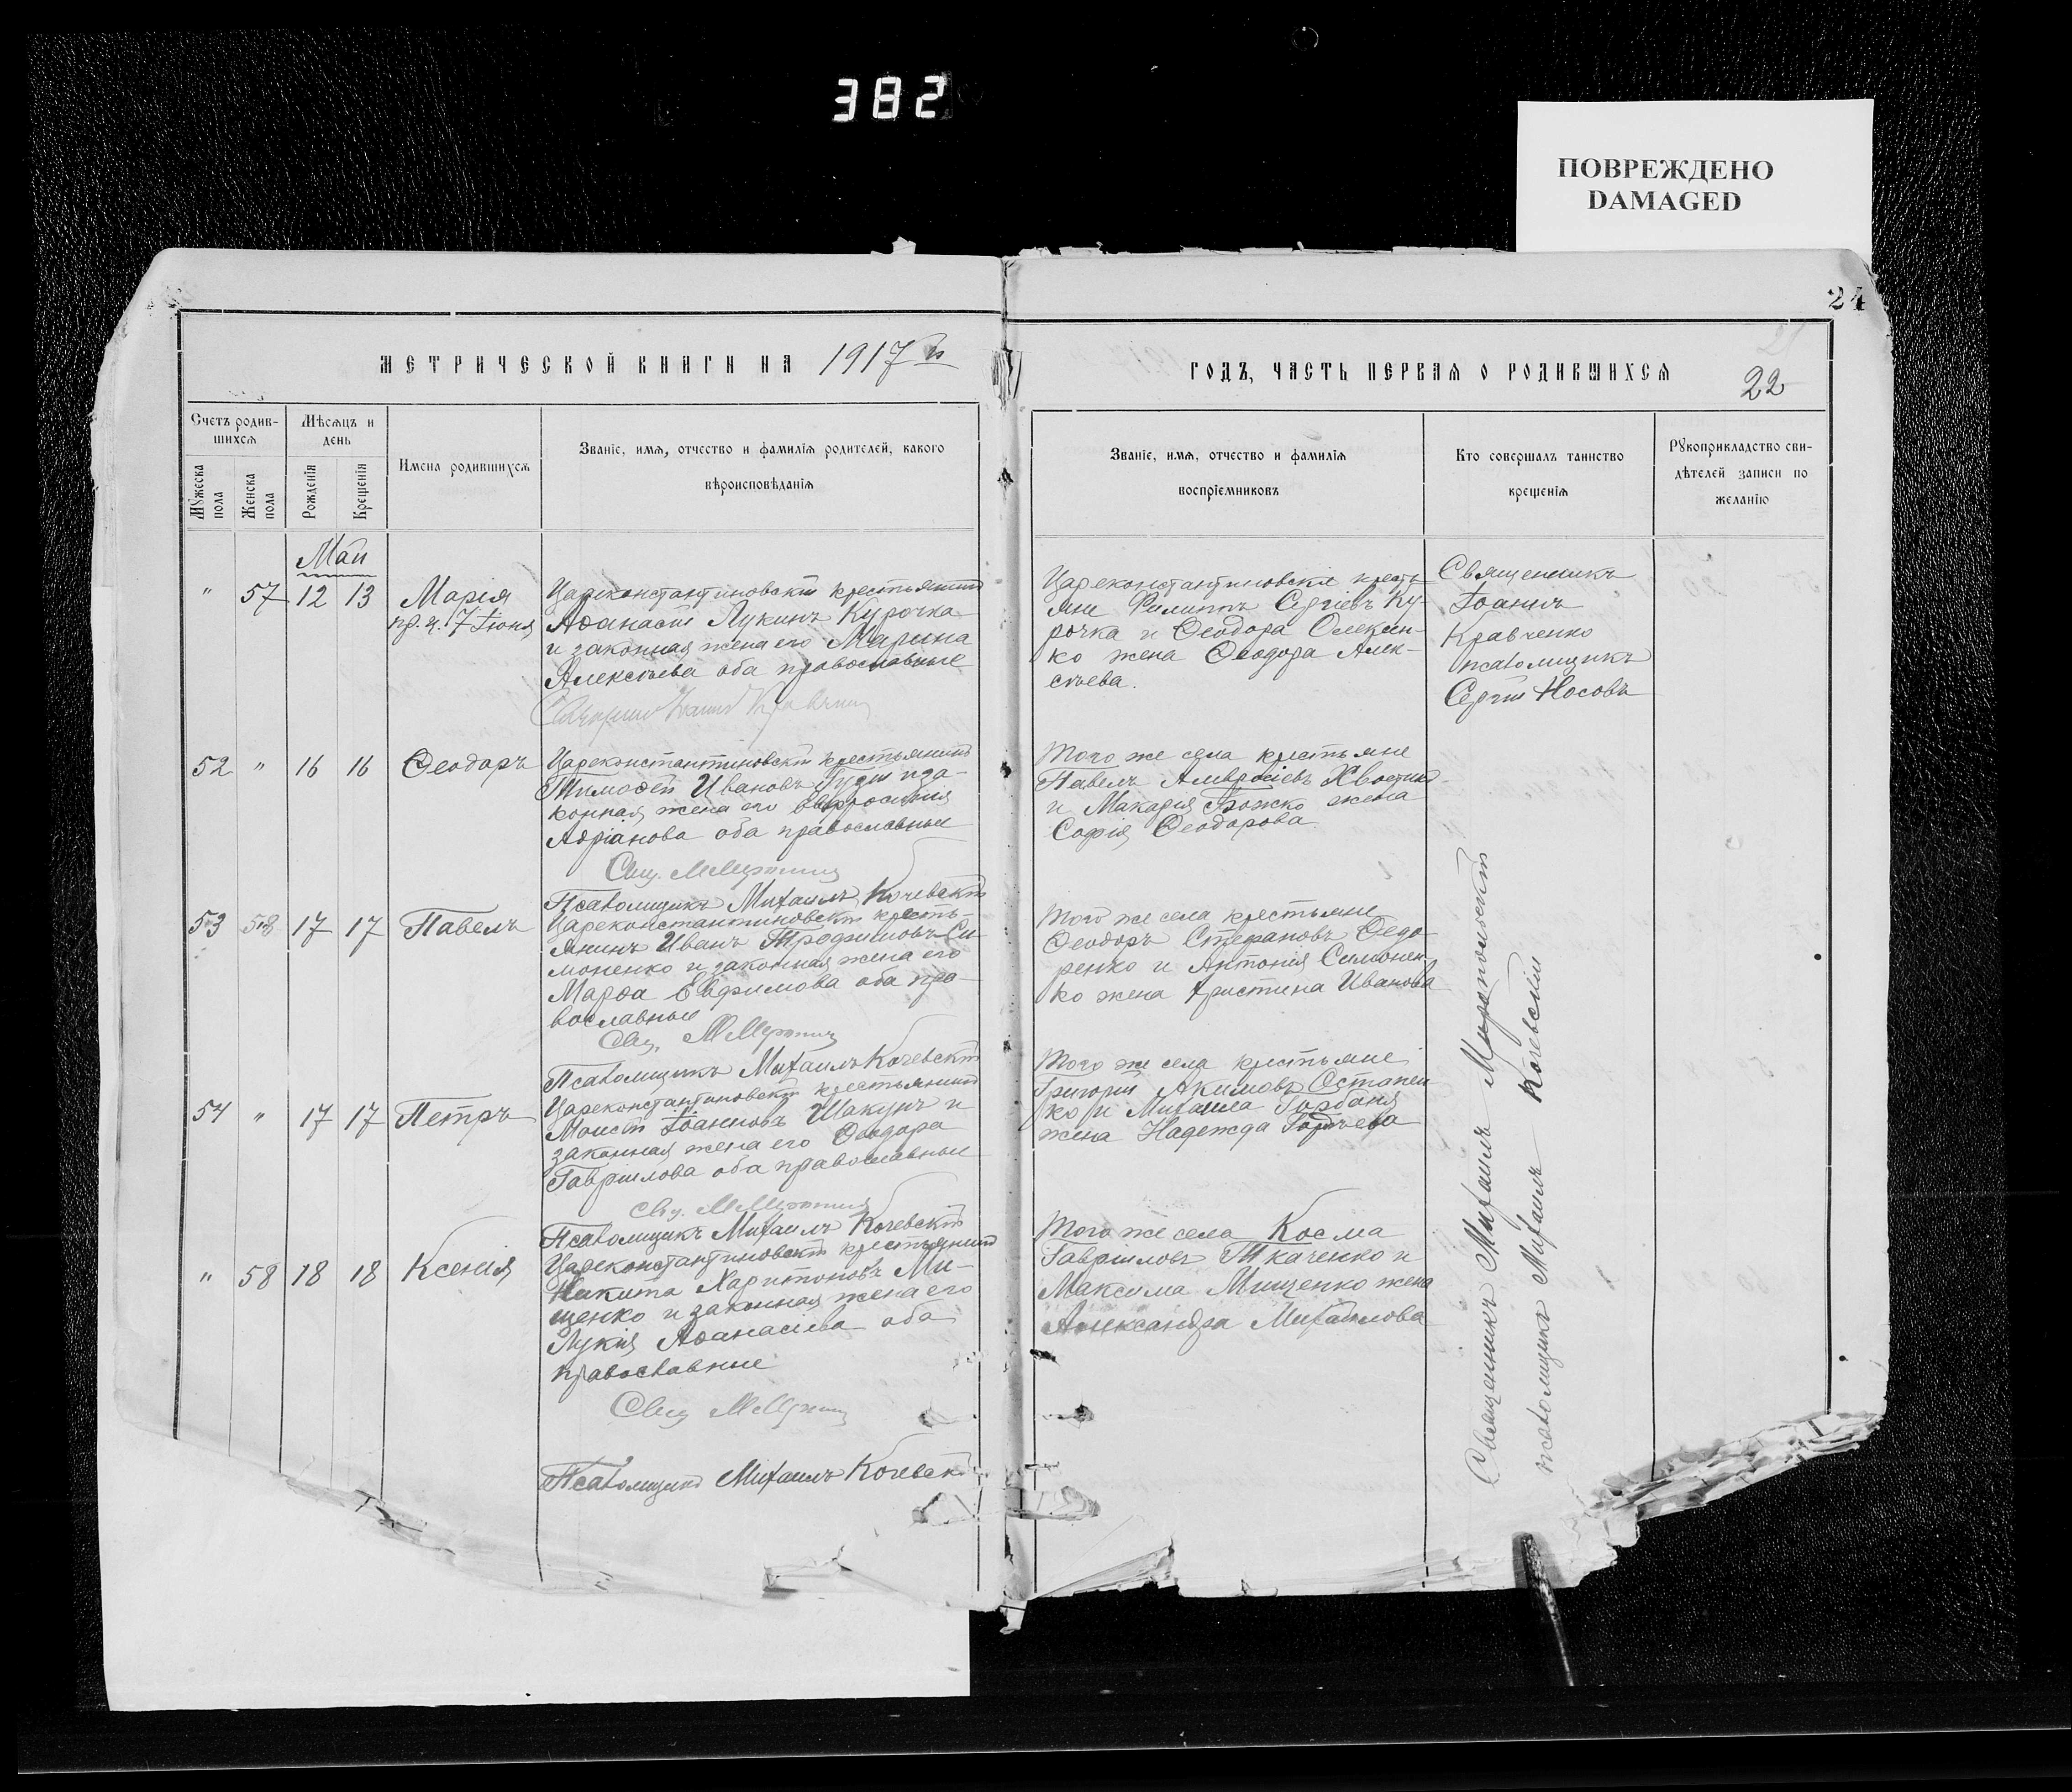 382
ПОВРЕЖДЕНО
DAMAGED
24
МЕТРИЧЕСКОЙ КНИГИ НА 1917 й
ГОДЪ, ЧАСТЬ ПЕРВАЯ О РОДИВШИХСЯ
22
Счетъ родив-
шихся
Мѣсяцъ и
день
Мужеска
пола
Женска
пола
Рожденія
Крещенія
Имена родившихся
Званіе, имя, отчество и фамилія родителей, какого
вѣроисповѣданія
Званіе, имя, отчество и фамилія
воспріемниковъ
Кто совершалъ таинство
крещенія
Рукоприкладство сви-
дѣтелей записи по
желанію
Май
" 57 12 13 Марія
пр. ч. 7 Іюня
Цареконстантиновскій крестьянинъ
Аѳанасій Лукинъ Курочка
и законная жена его Марина
Алексѣева оба православные
Цареконстантиновскіе кресть-
яне Филиппъ Сергіевъ Ку-
рочка и Ѳеодора Олексен-
ко жена Ѳеодора Алек-
сѣева.
Священникъ
Іоаннъ
Кравченко
псаломщикъ
Сергій Носовъ
52 " 16 16 Ѳеодоръ
Цареконстантиновскій крестьянинъ
Тимоѳей Ивановъ и за-
конная жена его Евфросинія
Адріанова оба православные
Свящ.
Псаломщикъ Михаилъ Кочевскій
Того же села крестьяне
Павелъ Амвросіевъ
и Макарія Божко жена
Софія Ѳеодорова
53 58 17 17 Павелъ
Цареконстантиновскій кресть-
янинъ Иванъ Трофимовъ Си-
моненко и законная жена его
Марѳа Евфимова оба пра-
вославные
Свящ.
Псаломщикъ Михаилъ Кочевскій
Того же села крестьяне
Ѳеодоръ Стефановъ Ѳедо-
ренко и Антонія Симонен-
ко жена Христина Иванова
54 " 17 17 Петръ
Цареконстантиновскій крестьянинъ
Моисей Іоанновъ Шакунъ и
законная жена его Ѳеодора
Гавріилова оба православные
Свящ.
Псаломщикъ Михаилъ Кочевскій
Того же села крестьяне
Григорій Акимовъ Остапен
ко и Михаила Горбаня
жена Надежда
" 58 18 18 Ксенія
Цареконстантиновскій крестьянинъ
Никита Харитоновъ Ми-
щенко и законная жена его
Лукія Аѳанасіева оба
православные
Свящ
Псаломщикъ Михаилъ Кочевскій
Того же села Косма
Гавріиловъ Ткаченко и
Максима Мищенко жена
Александра Михайлова
Священникъ Михаилъ
псаломщикъ Михаилъ Кочевскій